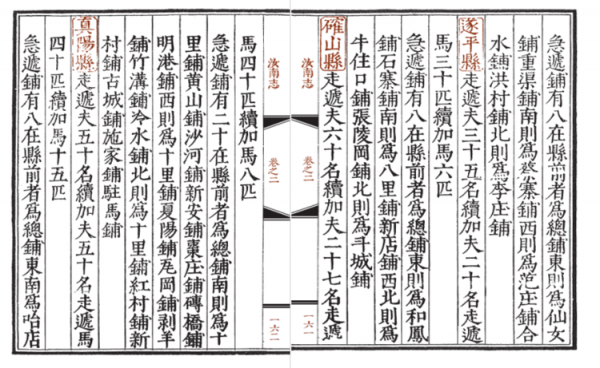 急遞鋪有八在縣前者爲總鋪東則爲仙女
鋪重渠鋪南則爲寨鋪西則爲范庄鋪合
水鋪洪村鋪北則爲李庄鋪
遂平縣走遞夫三十五名續加夫二十名走遞
馬三十匹續加馬六匹
急遞鋪有八在縣前者爲總鋪東則爲和鳳
鋪石寨鋪南則爲八里鋪新店鋪西北則爲
牛住口鋪張陵岡鋪北則爲斗城鋪
確山縣走遞夫六十名續加夫二十七名走遞
汝南志
卷之二
一六一
汝南志
卷之二
一六二
馬四十匹續加馬八匹
急遞鋪有二十在縣前者爲總鋪南則爲十
里鋪黃山鋪沙河鋪新安鋪棗庄鋪磚橋鋪
明港鋪西則爲十里鋪夏陽鋪岡鋪剥羊
鋪竹溝鋪冷水鋪北則爲十里鋪紅村鋪新
村鋪古城鋪施家鋪駐馬鋪
真陽縣走遞夫五十名續加夫五十名走遞馬
四十匹續加馬十五匹
急遞鋪有八在縣前者爲總鋪東南爲哈店